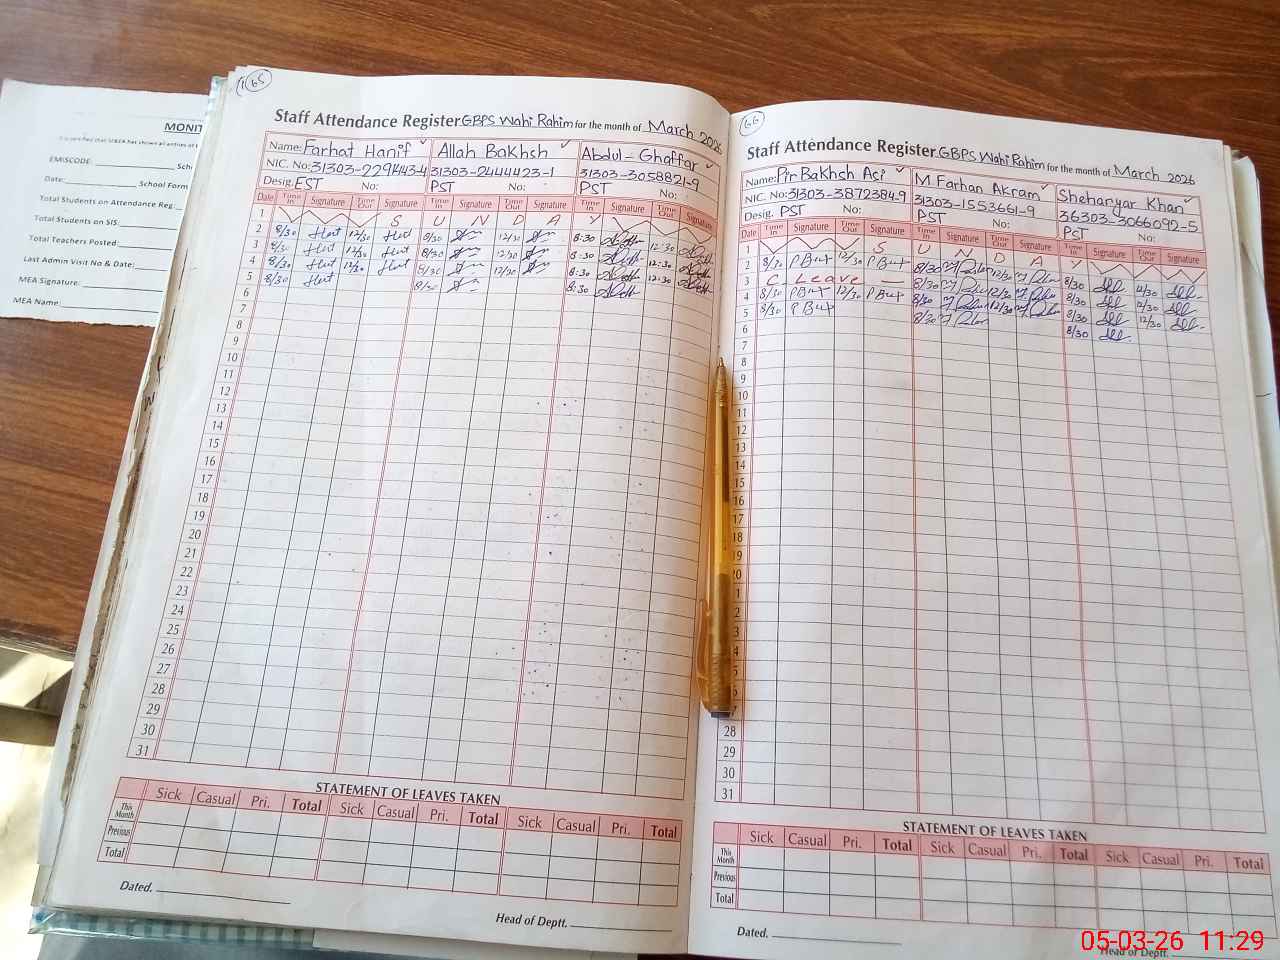 165
Staff Attendance Register GBPS Wahi Rahim for the month of March 2026
Name: Farhat Hanif Allah Bakhsh Abdul-Ghaffar
NIC. No: 31303-2294443-4 31303-2444423-1 31303-3058821-9
Desig. EST No: PST PST No:
Date Time In Signature Time Out Signature Time In Signature Time Out Signature Time In Signature Time Out Signature
1 S U N D A Y
2 8/30 12/30 8/30 12/30 8:30 12:30
3 8/30 12/30 8/30 12/30 8:30 12:30
4 8/30 12/30 8/30 12/30 8:30 12:30
5 8/30 8/30 8:30
6
7
8
9
10
11
12
13
14
15
16
17
18
19
20
21
22
23
24
25
26
27
28
29
30
31
STATEMENT OF LEAVES TAKEN
Sick Casual Pri. Total Sick Casual Pri. Total Sick Casual Pri. Total
This Month
Previous
Total
Dated.
Head of Deptt.
66
Staff Attendance Register GBPS Wahi Rahim for the month of March 2026
Name: Pir Bakhsh Asi M Farhan Akram Shehanyar Khan
NIC. No: 31303-3872384-9 31303-1553661-9 36303-3066092-5
Desig. PST No: PST No: PCT No:
Date Time In Signature Time Out Signature Time In Signature Time Out Signature Time In Signature Time Out Signature
1 S U N D A Y
2 8/30 12/30 8/30 12/30 8/30 12/30
3 C Leave 8/30 12/30 8/30 12/30
4 8/30 12/30 8/30 12/30 8/30 12/30
5 8/30 8/30 8/30
6
7
8
9
10
11
12
13
14
15
16
17
18
19
28
29
30
31
STATEMENT OF LEAVES TAKEN
Sick Casual Pri. Total Sick Casual Pri. Total Sick Casual Pri. Total
This Month
Previous
Total
Dated.
Head of Deptt.
MONIT
EMISCODE: Sch
Date: School Form
Total Students on Attendance Reg:
Total Students on SIS:
Total Teachers Posted:
Last Admin Visit No & Date:
MEA Signature:
MEA Name:
05-03-26 11:29